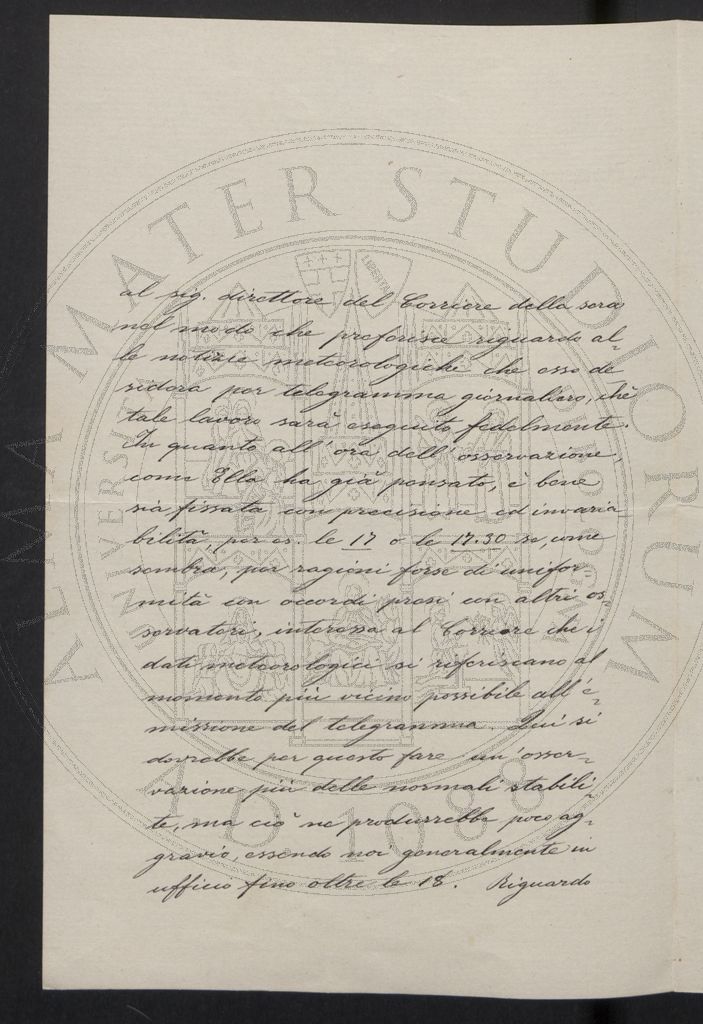 al sig. direttore del Corriere della sera
nel modo che preferisce riguardo al-
le notizie meteorologiche che esso de
sidera per telegramma giornaliero, chè
tale lavoro sarà eseguito fedelmente.
In quanto all'ora dell'osservazione,
come Ella ha già pensato, è bene
sia fissata con precisione ed invaria-
bilità, per es. le 17 o le 17.30 se, come
sembra, per ragioni forse di unifor
mità con accordi presi con altri os-
servatori, interessa al Corriere che i
dati meteorologici si riferiscano al
momento più vicino possibile all'e-
missione del telegramma. Qui si
dovrebbe per questo fare un'osser-
vazione più delle normali stabili-
te, ma ciò ne produrrebbe poco ag-
gravio, essendo noi generalmente in
ufficio fino oltre le 18. Riguardo
ALMA MATER STUDIORUM
A.D. 1088
LIBERTAS